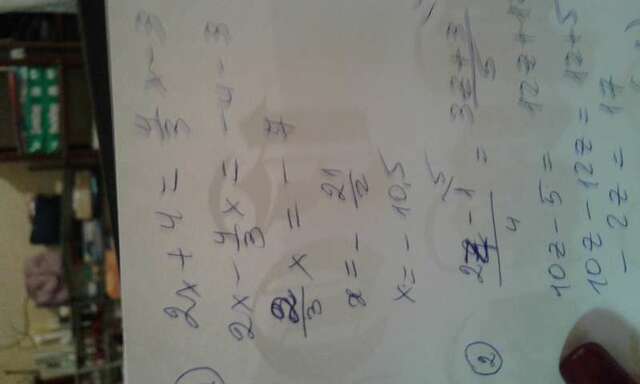 2x + 4 = 4/3 x - 3
2x - 4/3 x = -4 - 3
2/3 x = - 7
x = - 21/2
x = - 10,5
2
2z - 1 / 4 = 3z + 3 / 5
10z - 5 = 12z + 1
10z - 12z = 12 + 5
- 2z = 17